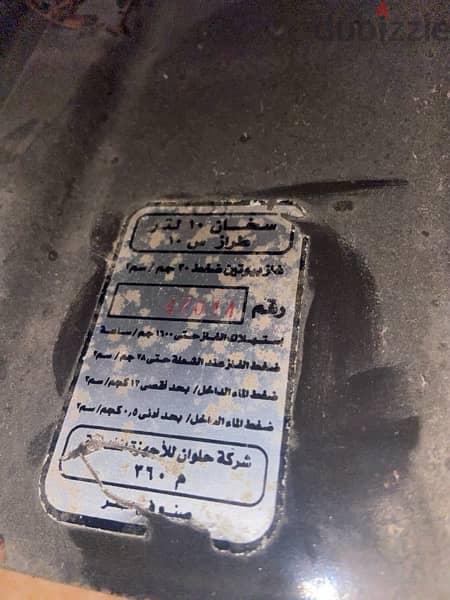 dubizzle
سخان ١٠ لتر
طراز س ١٠
غاز بيوتين ضغط ٣٠ جم/سم٢
رقم
إستهلاك الغاز حتى ١٦٠٠ جم/ساعة
ضغط الغاز عند الشعلة حتى ٢٨ جم/سم٢
ضغط الماء الداخل/ بحد أقصى ١٢ كجم/سم٢
ضغط الماء الداخل/ بحد أدنى ٠,٥ كجم/سم٢
شركة حلوان للأجهزة
م ٣٦٠
صنع